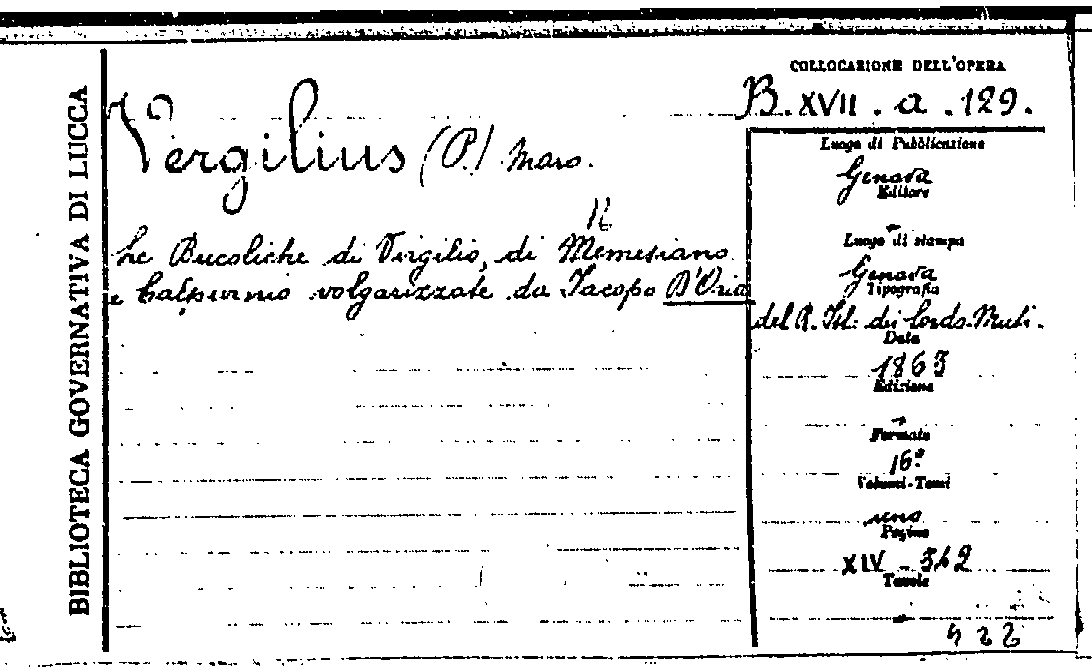 BIBLIOTECA GOVERNATIVA DI LUCCA
COLLOCAZIONE DELL'OPERA
B. XVII. a. 129.
Vergilius (P.) Maro.
N
Le Bucoliche di Virgilio, di Memesiano
e Calpurnio volgarizzate da Jacopo D'Oria
Luogo di Pubblicazione
Genova
Editore
Luogo di stampa
Genova
Tipografia
del R. Ist. dei Sordo-Muti.
Data
1863
Edizione
Formato
16º
Volumi-Tomi
uno
Pagine
XIV - 342
Tavole